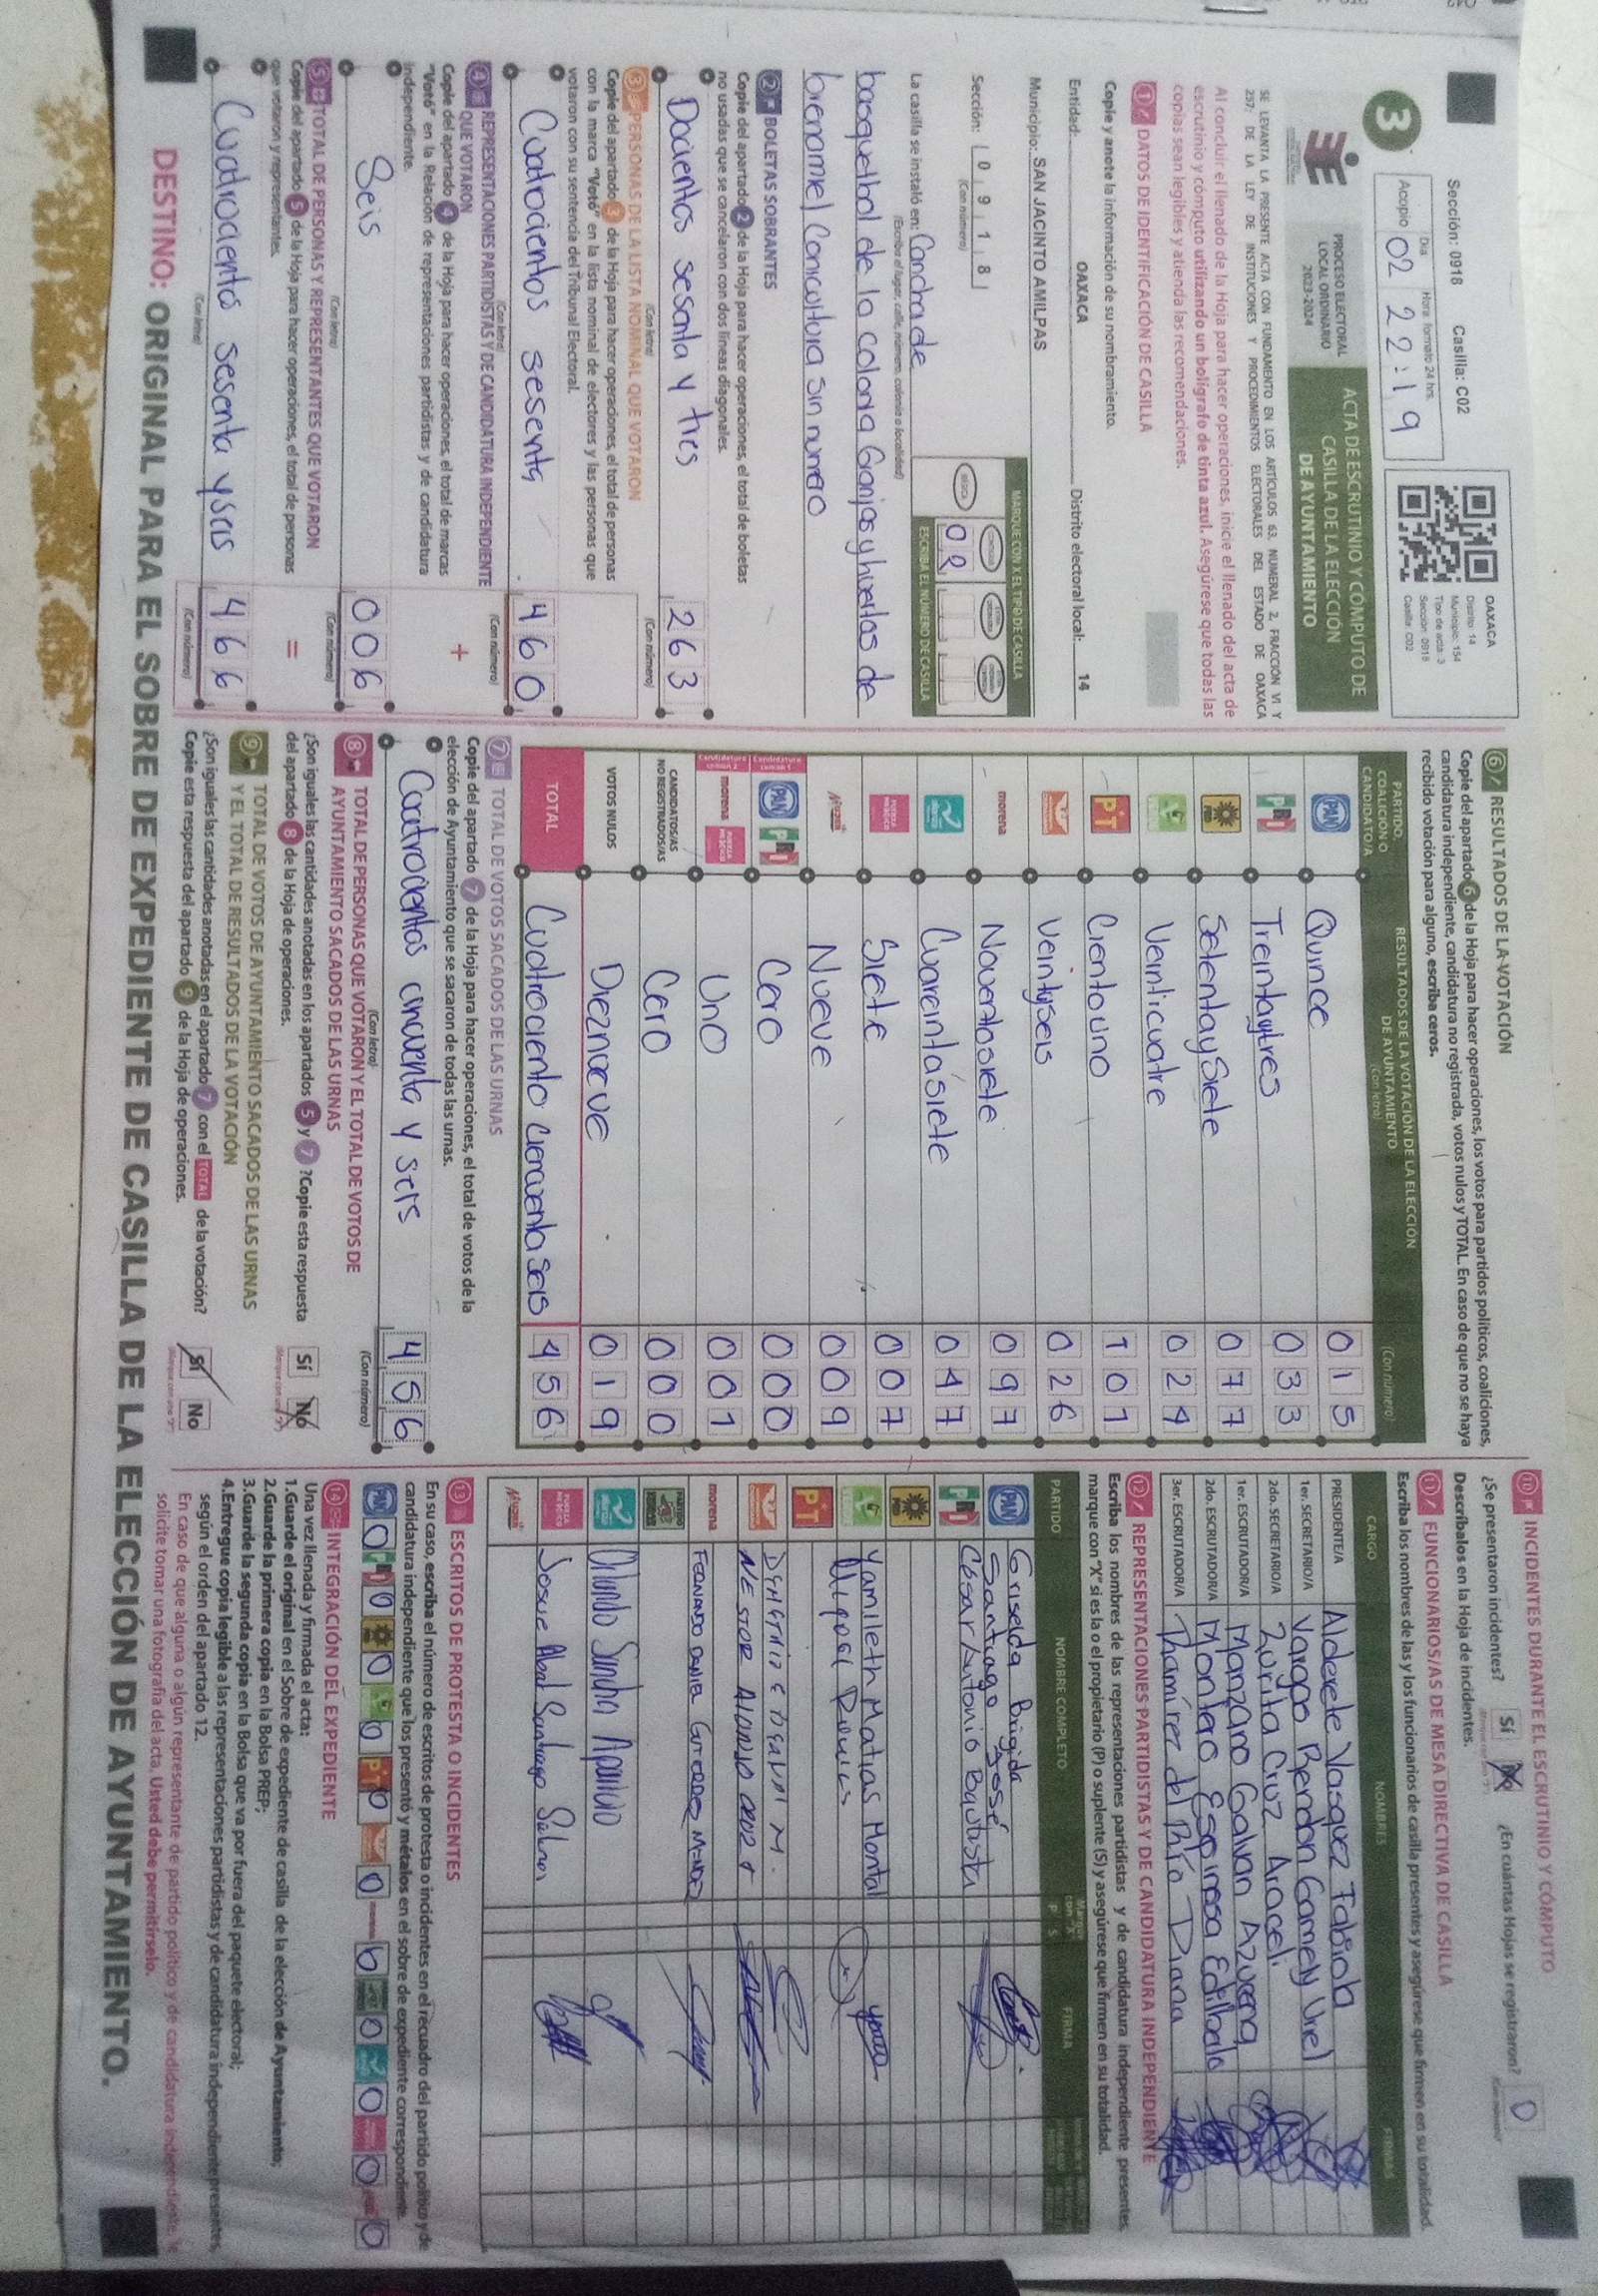 Sección: 0918 Casilla: C02
3
Día Hora: formato 24 hrs.
Acopio 02 22:19
OAXACA
Distrito: 14
Municipio: 154
Tipo de acta: 3
Sección: 0918
Casilla: C02
PROCESO ELECTORAL
LOCAL ORDINARIO
2023-2024
ACTA DE ESCRUTINIO Y CÓMPUTO DE
CASILLA DE LA ELECCIÓN
DE AYUNTAMIENTO
SE LEVANTA LA PRESENTE ACTA CON FUNDAMENTO EN LOS ARTÍCULOS 63, NUMERAL 2, FRACCIÓN VI Y
257; DE LA LEY DE INSTITUCIONES Y PROCEDIMIENTOS ELECTORALES DEL ESTADO DE OAXACA
Al concluir el llenado de la Hoja para hacer operaciones, inicie el llenado del acta de
escrutinio y cómputo utilizando un bolígrafo de tinta azul. Asegúrese que todas las
copias sean legibles y atienda las recomendaciones.
1 DATOS DE IDENTIFICACIÓN DE CASILLA
Copie y anote la información de su nombramiento.
Entidad: OAXACA Distrito electoral local: 14
Municipio: SAN JACINTO AMILPAS
Sección: 0 9 1 8
(Con número)
MARQUE CON X EL TIPO DE CASILLA
BÁSICA
02
ESCRIBA EL NÚMERO DE CASILLA
La casilla se instaló en: Cancha de
(Escriba el lugar, calle, número, colonia o localidad)
basquetbol de la colonia Granjas y huertas de
brenamiel Canicultura sin numero
2 BOLETAS SOBRANTES
Copie del apartado 2 de la Hoja para hacer operaciones, el total de boletas
no usadas que se cancelaron con dos líneas diagonales.
Docientos sesenta y tres 263
(Con letra) (Con número)
3 PERSONAS DE LA LISTA NOMINAL QUE VOTARON
Copie del apartado 3 de la Hoja para hacer operaciones, el total de personas
con la marca "Votó" en la lista nominal de electores y las personas que
votaron con su sentencia del Tribunal Electoral.
Cuatrocientos sesenta 460
(Con letra) (Con número)
4 REPRESENTACIONES PARTIDISTAS Y DE CANDIDATURA INDEPENDIENTE
QUE VOTARON
Copie del apartado 4 de la Hoja para hacer operaciones, el total de marcas
"Votó" en la Relación de representaciones partidistas y de candidatura
independiente.
+
Seis 006
(Con letra) (Con número)
5 TOTAL DE PERSONAS Y REPRESENTANTES QUE VOTARON
Copie del apartado 5 de la Hoja para hacer operaciones, el total de personas
que votaron y representantes.
=
Cuatrocientos sesenta y seis 466
(Con letra) (Con número)
6 RESULTADOS DE LA VOTACIÓN
Copie del apartado 6 de la Hoja para hacer operaciones, los votos para partidos políticos, coaliciones,
candidatura independiente, candidatura no registrada, votos nulos y TOTAL. En caso de que no se haya
recibido votación para alguno, escriba ceros.
PARTIDO,
COALICIÓN O
CANDIDATO/A
RESULTADOS DE LA VOTACIÓN DE LA ELECCIÓN
DE AYUNTAMIENTO
(Con letra) (Con número)
PAN Quince 015
PRI Treinta y tres 033
PRD Setenta y Siete 077
Veinticuatro 024
PT Ciento uno 101
Veintyseis 026
morena Noventa siete 097
Cuarenta siete 047
FUERZA MÉXICO Siete 007
Nueve 009
Candidatura común 1 PAN PRI Cero 000
Candidatura común 2 morena FUERZA MÉXICO Uno 001
CANDIDATOS/AS
NO REGISTRADOS/AS Cero 000
VOTOS NULOS Dieznueve 019
TOTAL Cuatrociento cincuenta seis 456
7 TOTAL DE VOTOS SACADOS DE LAS URNAS
Copie del apartado 7 de la Hoja para hacer operaciones, el total de votos de la
elección de Ayuntamiento que se sacaron de todas las urnas.
Cuatrocientos cincuenta y seis 456
(Con letra) (Con número)
8 TOTAL DE PERSONAS QUE VOTARON Y EL TOTAL DE VOTOS DE
AYUNTAMIENTO SACADOS DE LAS URNAS
¿Son iguales las cantidades anotadas en los apartados 5 y 7? Copie esta respuesta
del apartado 8 de la Hoja de operaciones.
Sí No
9 TOTAL DE VOTOS DE AYUNTAMIENTO SACADOS DE LAS URNAS
Y EL TOTAL DE RESULTADOS DE LA VOTACIÓN
¿Son iguales las cantidades anotadas en el apartado 7 con el TOTAL de la votación?
Copie esta respuesta del apartado 9 de la Hoja de operaciones.
Sí No
10 INCIDENTES DURANTE EL ESCRUTINIO Y CÓMPUTO
¿Se presentaron incidentes? Sí No ¿En cuántas Hojas se registraron? 0
Descríbalos en la Hoja de incidentes.
11 FUNCIONARIOS/AS DE MESA DIRECTIVA DE CASILLA
Escriba los nombres de las y los funcionarios de casilla presentes y asegúrese que firmen en su totalidad.
CARGO NOMBRES FIRMAS
PRESIDENTE/A Alderete Vasquez Fabiola
1er. SECRETARIO/A Vargas Rendon Gamely Uriel
2do. SECRETARIO/A Zurita Cruz Araceli
1er. ESCRUTADOR/A Manzano Galvan Azucena
2do. ESCRUTADOR/A Montero Espinosa Edilberto
3er. ESCRUTADOR/A Ramírez del Río Diana
12 REPRESENTACIONES PARTIDISTAS Y DE CANDIDATURA INDEPENDIENTE
Escriba los nombres de las representaciones partidistas y de candidatura independiente presentes,
marque con "X" si es la o el propietario (P) o suplente (S) y asegúrese que firmen en su totalidad.
PARTIDO NOMBRE COMPLETO P S FIRMA
PAN Griselda Brigida
Santiago José
PRI César Antonio Bautista
PRD
Yamileth Matias Montal
Miguel
PT
NESTOR ALONSO
morena FERNANDO DAVID GUTIERREZ MENDEZ
Orlando Sanchez Aparicio
FUERZA MÉXICO Josue Abad Santiago
13 ESCRITOS DE PROTESTA O INCIDENTES
En su caso, escriba el número de escritos de protesta o incidentes en el recuadro del partido político y de
candidatura independiente que los presentó y métalos en el sobre de expediente correspondiente.
PAN 0 PRI 0 PRD 0 0 PT 0 0 morena 0 0 0 0 0
14 INTEGRACIÓN DEL EXPEDIENTE
Una vez llenada y firmada el acta:
1.Guarde el original en el Sobre de expediente de casilla de la elección de Ayuntamiento;
2.Guarde la primera copia en la Bolsa PREP;
3.Guarde la segunda copia en la Bolsa que va por fuera del paquete electoral;
4.Entregue copia legible a las representaciones partidistas y de candidatura independiente presentes,
según el orden del apartado 12.
En caso de que alguna o algún representante de partido político y de candidatura independiente, le
solicite tomar una fotografía del acta. Usted debe permitírselo.
DESTINO: ORIGINAL PARA EL SOBRE DE EXPEDIENTE DE CASILLA DE LA ELECCIÓN DE AYUNTAMIENTO.